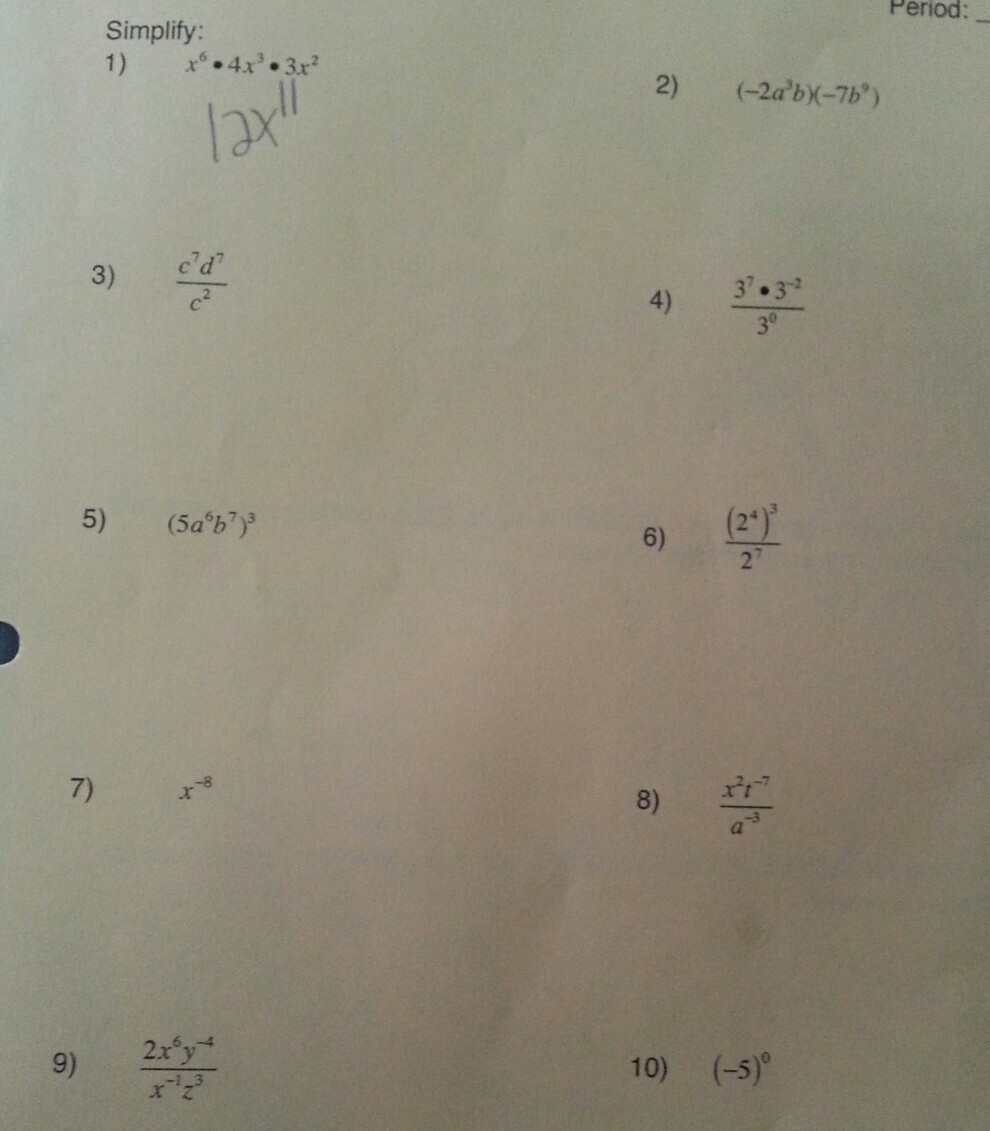 Period: _
Simplify:
1) x⁶ • 4x³ • 3x²
2) (−2a³b)(−7b⁹)
12x¹¹
3) c⁷d⁷ / c²
4) 3⁷ • 3⁻² / 3⁰
5) (5a⁶b⁷)³
6) (2⁴)³ / 2⁷
7) x⁻⁸
8) x²t⁻⁷ / a⁻³
9) 2x⁶y⁻⁴ / x⁻¹z³
10) (−5)⁰